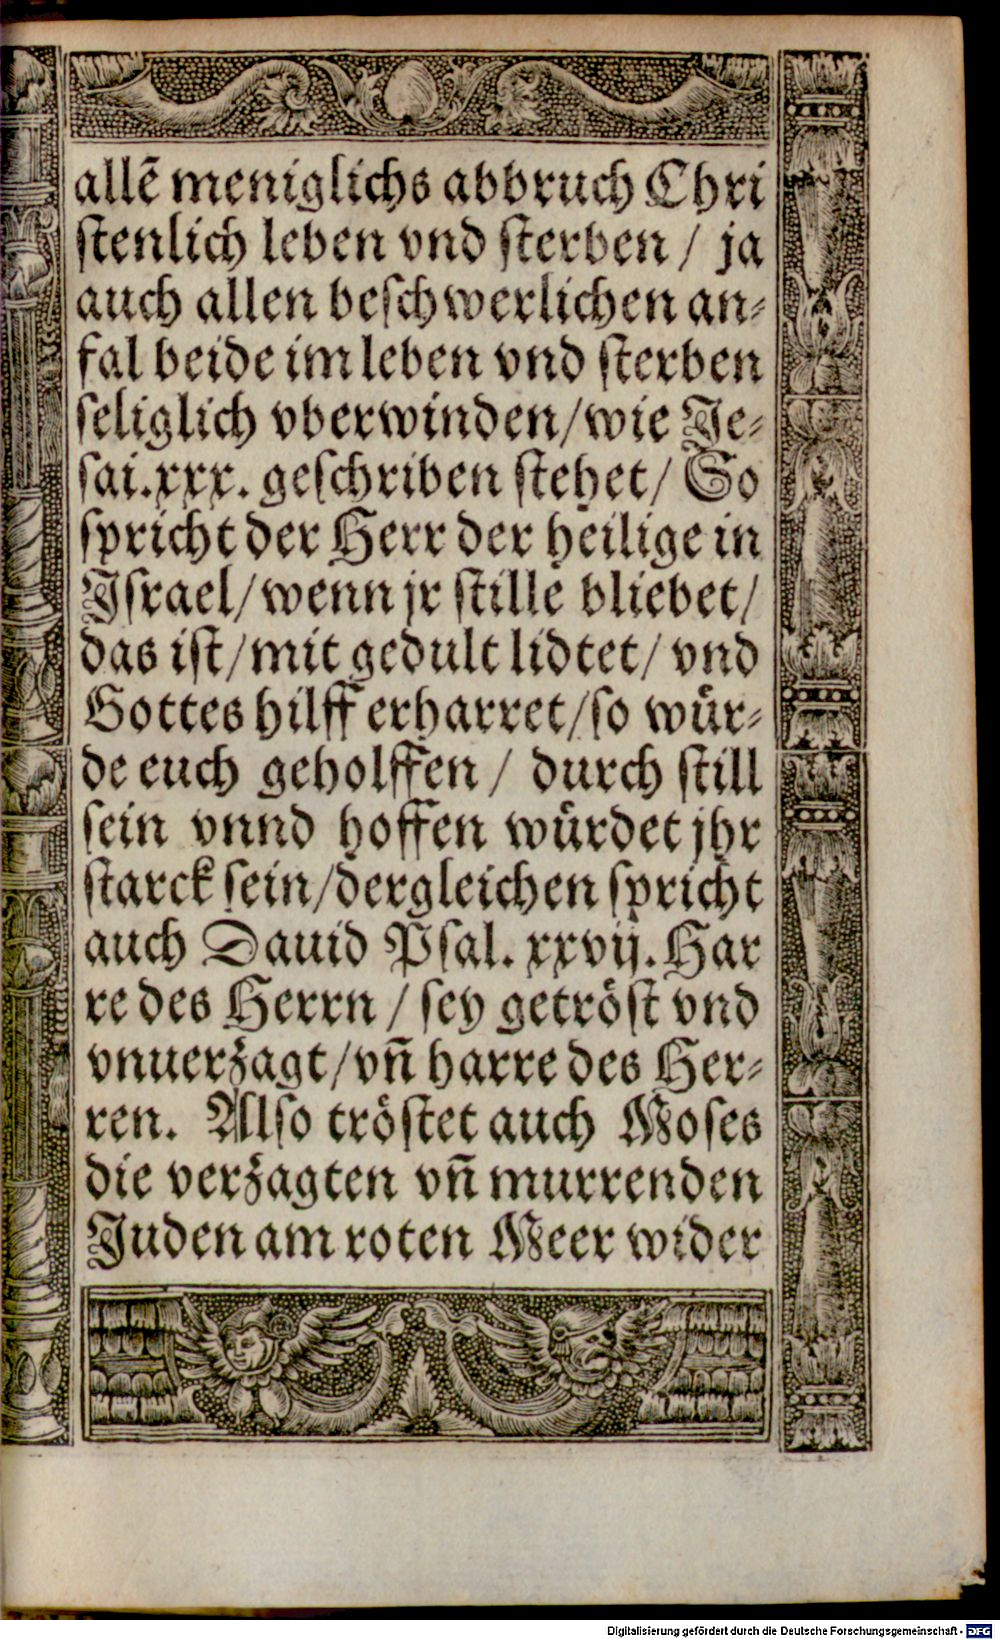 allē meniglichs abbruch Chri
stenlich leben vnd sterben / ja
auch allen beschwerlichen an-
fal beide im leben vnd sterben
seliglich vberwinden/wie Je-
sai.xxx. geschriben stehet/ So
spricht der Herr der heilige in
Israel/wenn jr stille bliebet/
das ist/mit gedult lidtet/ vnd
Gottes hilff erharret/so wür-
de euch geholffen / durch still
sein vnnd hoffen würdet jhr
starck sein/dergleichen spricht
auch Dauid Psal. xxvij. Har
re des Herrn / sey getröst vnd
vnuerzagt/vn̄ harre des Her-
ren. Also tröstet auch Moses
die verzagten vn̄ murrenden
Juden am roten Meer wider
Digitalisierung gefördert durch die Deutsche Forschungsgemeinschaft - DFG